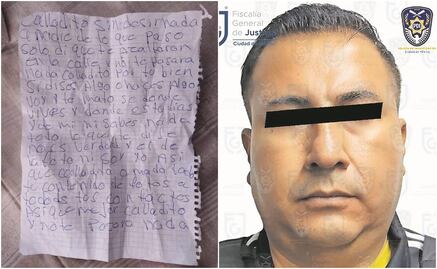 Calladito sin desir nada
a nadie de lo que paso
solo di que te asaltaron
en la calle y no te pasara
nada calladito por tu bien
si dises algo o haces algo
voy y te mato se donde
vives y donde estudias
y de mi no sabes nada
todo lo que te dije
no es verdad y el de
la foto ni soy yo Asi
que calladito o mando
tu contenido de fotos a
todos tus contactos
Asi que mejor calladito
y no te pasara nada
Fiscalía
General
de Justicia
Ciudad de
PDI